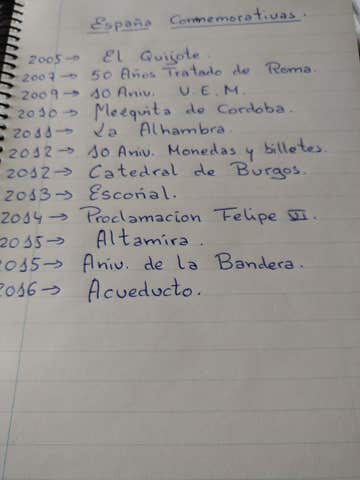 España Conmemorativas.
2005→ El Quijote.
2007→ 50 Años Tratado de Roma.
2009→ 10 Aniv. U.E.M.
2010→ Mezquita de Cordoba.
2011→ La Alhambra.
2012→ 10 Aniv. Monedas y billetes.
2012→ Catedral de Burgos.
2013→ Escorial.
2014→ Proclamacion Felipe VI.
2015→ Altamira.
2015→ Aniv. de la Bandera.
2016→ Acueducto.